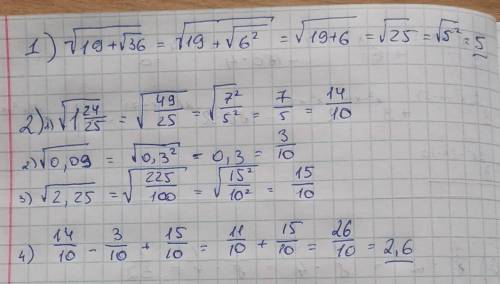 1) √(19+√36) = √(19+√6²) = √(19+6) = √25 = √5² = 5
2) 1) √(1 24/25) = √(49/25) = √(7²/5²) = 7/5 = 14/10
2) √0,09 = √0,3² = 0,3 = 3/10
3) √2,25 = √(225/100) = √(15²/10²) = 15/10
4) 14/10 - 3/10 + 15/10 = 11/10 + 15/10 = 26/10 = 2,6